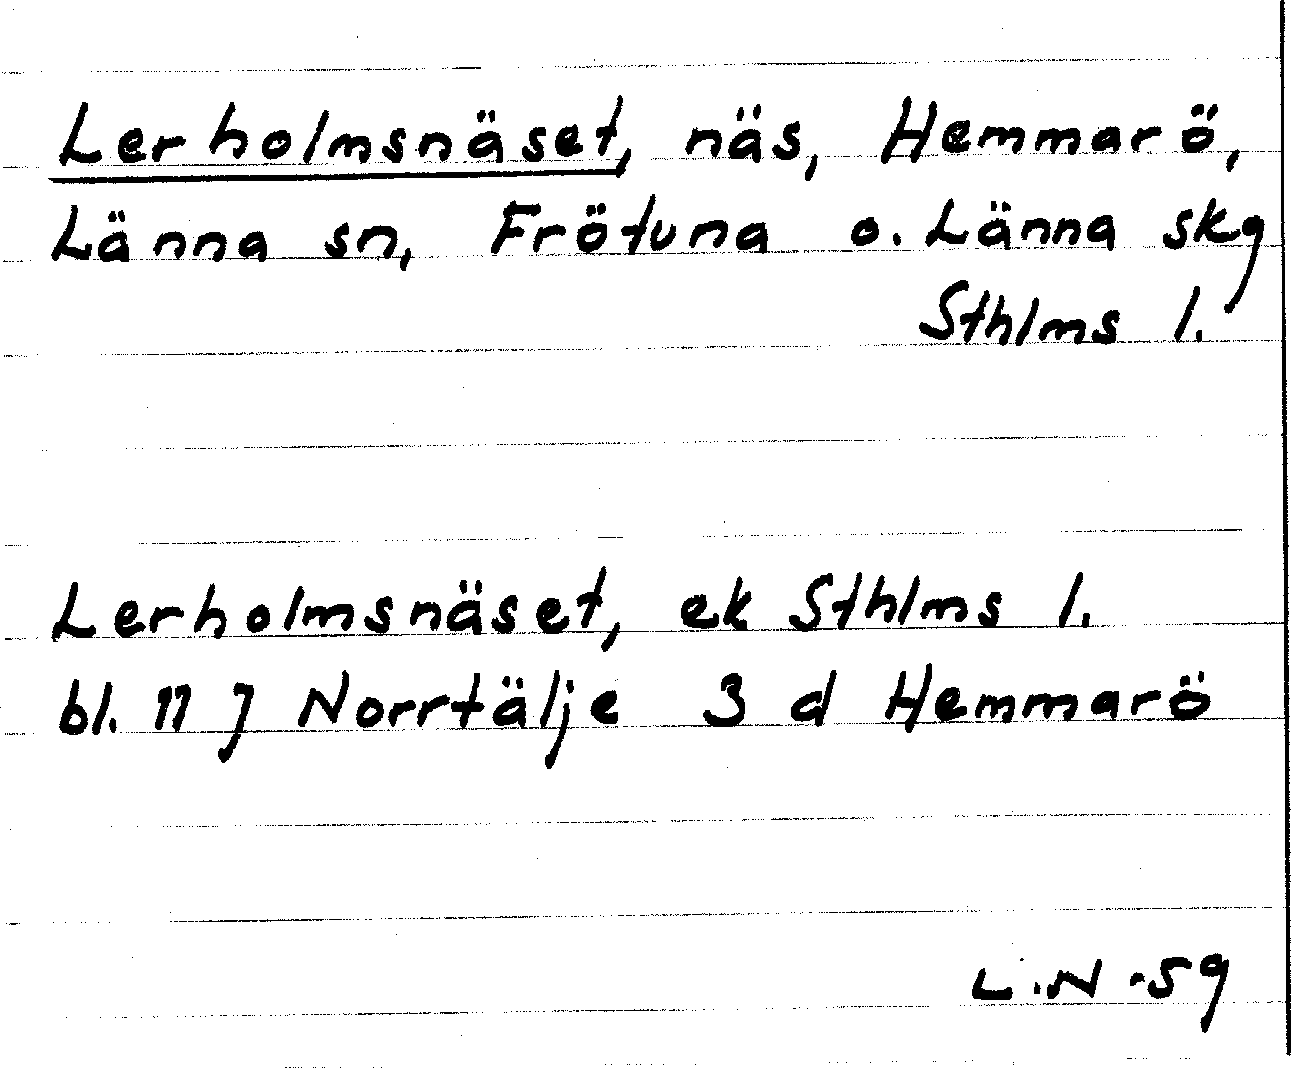 Lerholmsnäset, näs, Hemmarö,
Länna sn, Frötuna o. Länna skg
Sthlms l.
Lerholmsnäset, ek Sthlms l.
bl. 11 J Norrtälje 3 d Hemmarö
L.N -59